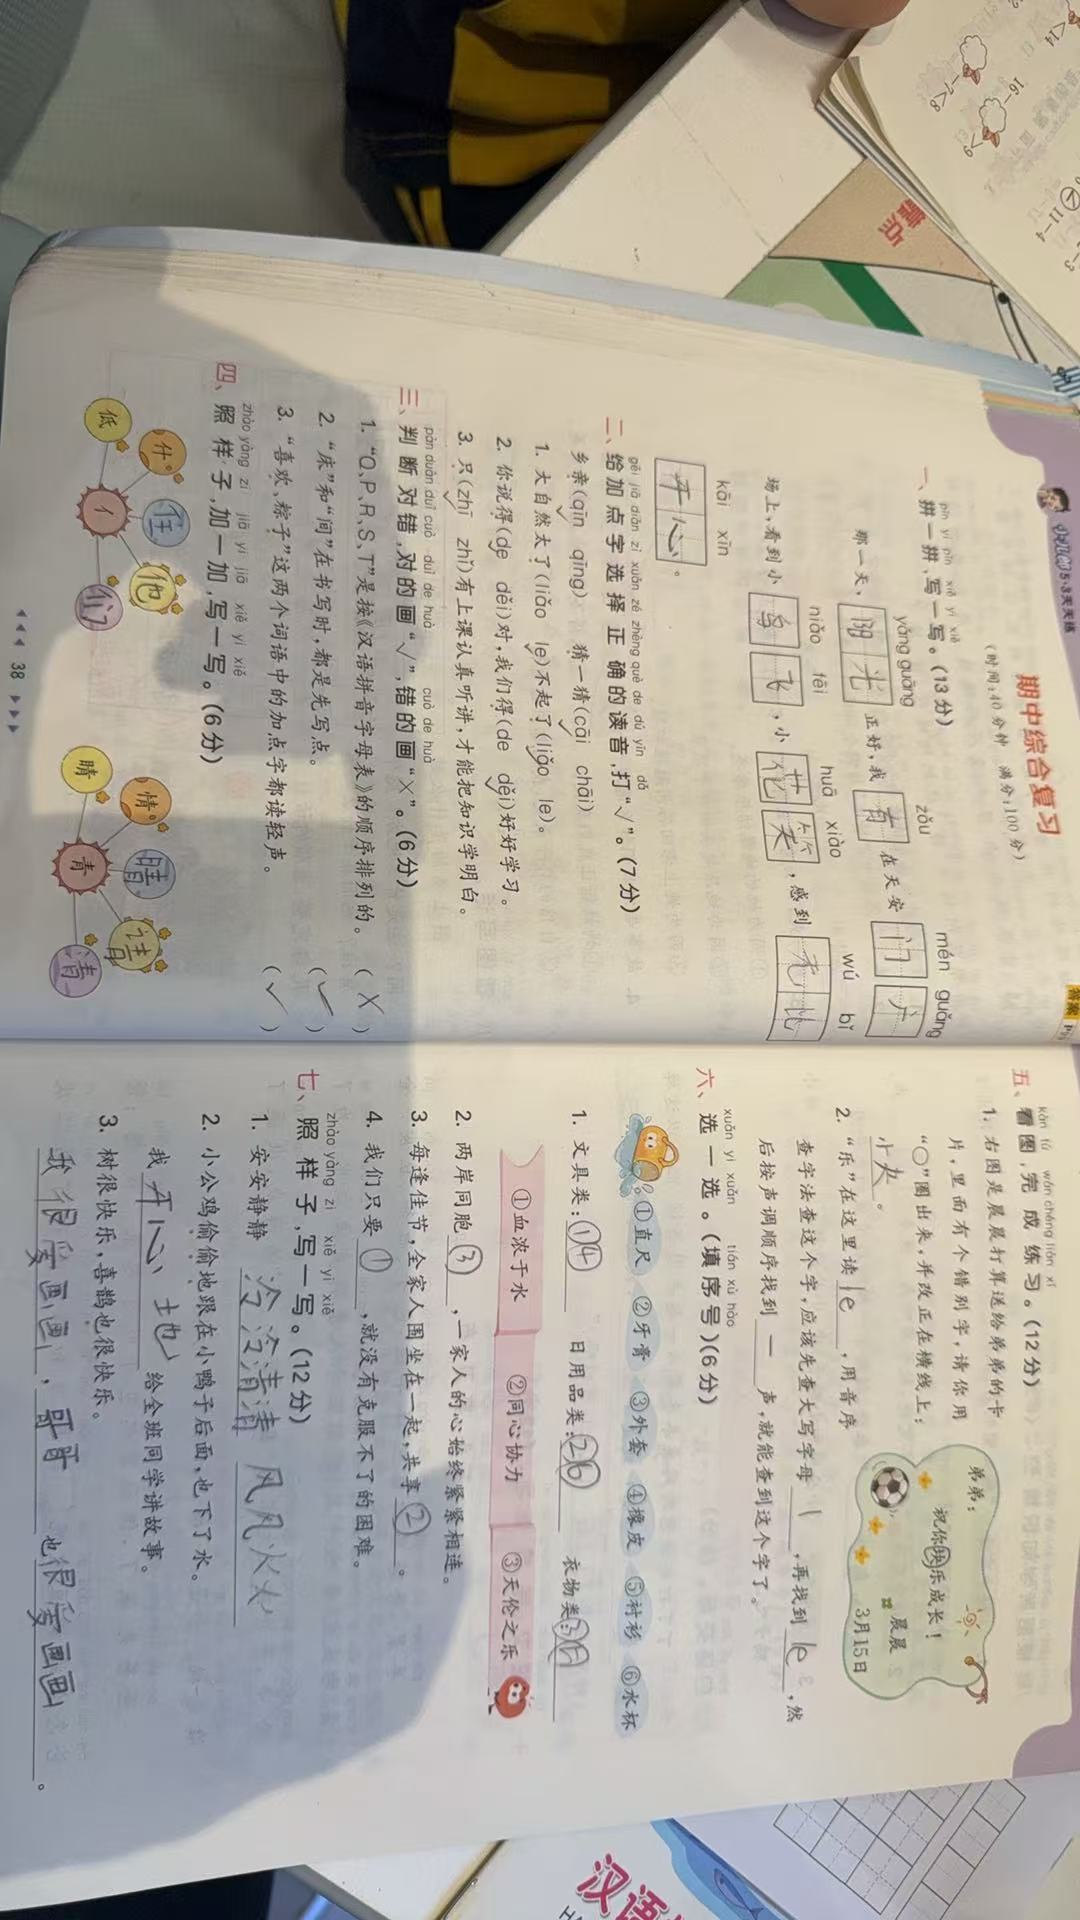 小儿郎5·3天天练
期中综合复习
(时间:40分钟 满分:100分)
答案
pīn yī pīn xiě yì xiě
一、拼一拼,写一写。(13分)
yáng guāng zǒu mén guǎng
那一天,阳光正好,我有在天安门广
niǎo fēi huā xiào wú bǐ
场上,看到小鸟飞,小花笑,感到无比
kāi xīn
开心。
gěi jiā diǎn zì xuǎn zé zhèng què de dú yīn dǎ
二、给加点字选择正确的读音,打“√”。(7分)
乡亲(qīn√ qīng) 猜一猜(cāi√ chāi)
1. 大自然太了(liǎo le√)不起了(liǎo√ le)。
2. 你说得(de√ děi)对,我们得(de děi√)好好学习。
3. 只(zhī√ zhǐ)有上课认真听讲,才能把知识学明白。
pàn duàn duì cuò duì de huà cuò de huà
三、判断对错,对的画“√”,错的画“×”。(6分)
1. “Q、P、R、S、T”是按《汉语拼音字母表》的顺序排列的。 (×)
2. “床”和“间”在书写时,都是先写点。 (√)
3. “喜欢、粽子”这两个词语中的加点字都读轻声。 (√)
zhào yàng zi jiā yì jiā xiě yì xiě
四、照样子,加一加,写一写。(6分)
低 什 住 他 们 亻
睛 情 晴 请 清 青
38
kàn tú wán chéng liàn xí
五、看图,完成练习。(12分)
1. 右图是晨晨打算送给弟弟的卡
片,里面有个错别字,请你用
“○”圈出来,并改正在横线上:
弟弟:
祝你快乐成长!
晨晨
3月15日
2. “乐”在这里读le,用音序
查字法查这个字,应该先查大写字母l,再找到le,然
后按声调顺序找到一声,就能查到这个字了。
xuǎn yì xuǎn tián xù hào
六、选一选。(填序号)(6分)
①直尺 ②牙膏 ③外套 ④橡皮 ⑤衬衫 ⑥水杯
1. 文具类:①④ 日用品类:②⑥ 衣物类:③⑤
①血浓于水 ②同心协力 ③天伦之乐
2. 两岸同胞③,一家人的心始终紧紧相连。
3. 每逢佳节,全家人围坐在一起,共享②。
4. 我们只要①,就没有克服不了的困难。
zhào yàng zi xiě yì xiě
七、照样子,写一写。(12分)
1. 安安静静 冷冷清清 风风火火
2. 小公鸡偷偷地跟在小鸭子后面,也下了水。
我开心地给全班同学讲故事。
3. 树很快乐,喜鹊也很快乐。
我很爱画画,哥哥也很爱画画。
汉语